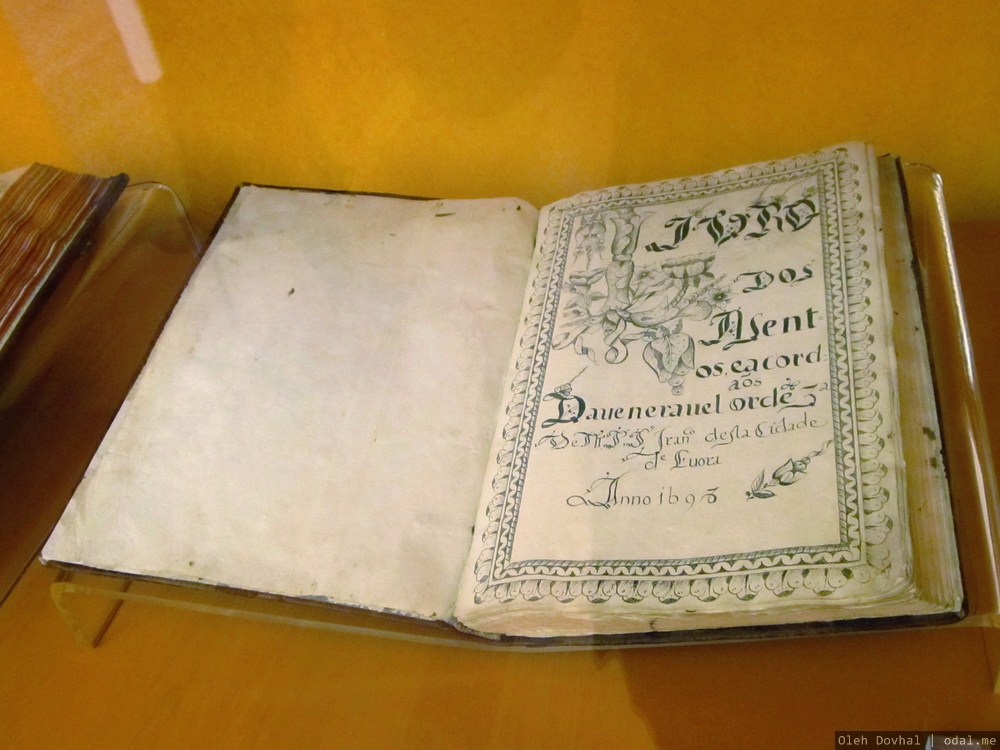 LIVRO
DOS
Asent
os, eacord.
aõs
Daveneravel ordẽ 3ª
De N. P. S. Franᶜᵒ desta Cidade
de Evora
Anno 1693
Oleh Dovhal | odal.me